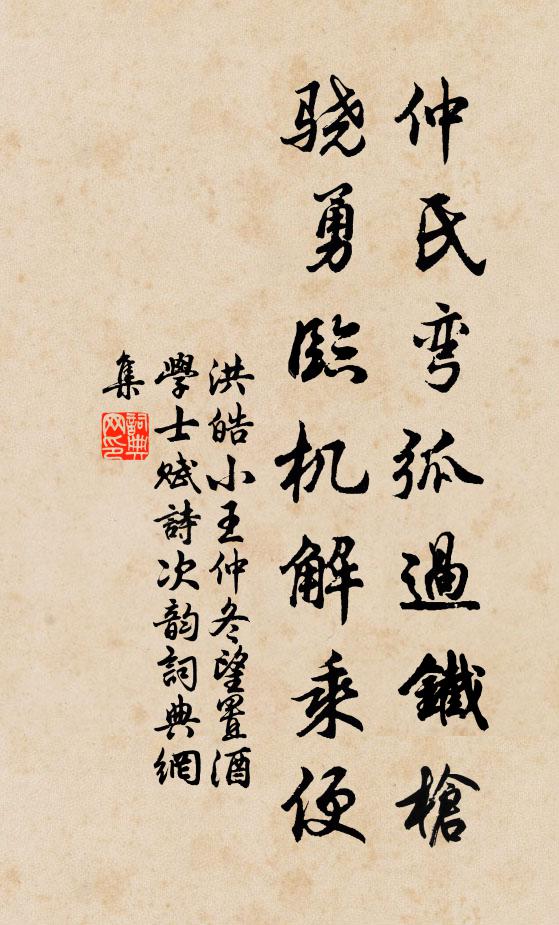 仲氏弯弧過鐵槍
骁勇臨机解乘便
洪皓小王仲冬望置酒
學士赋詩次韵詞典網
集
詞典
网印